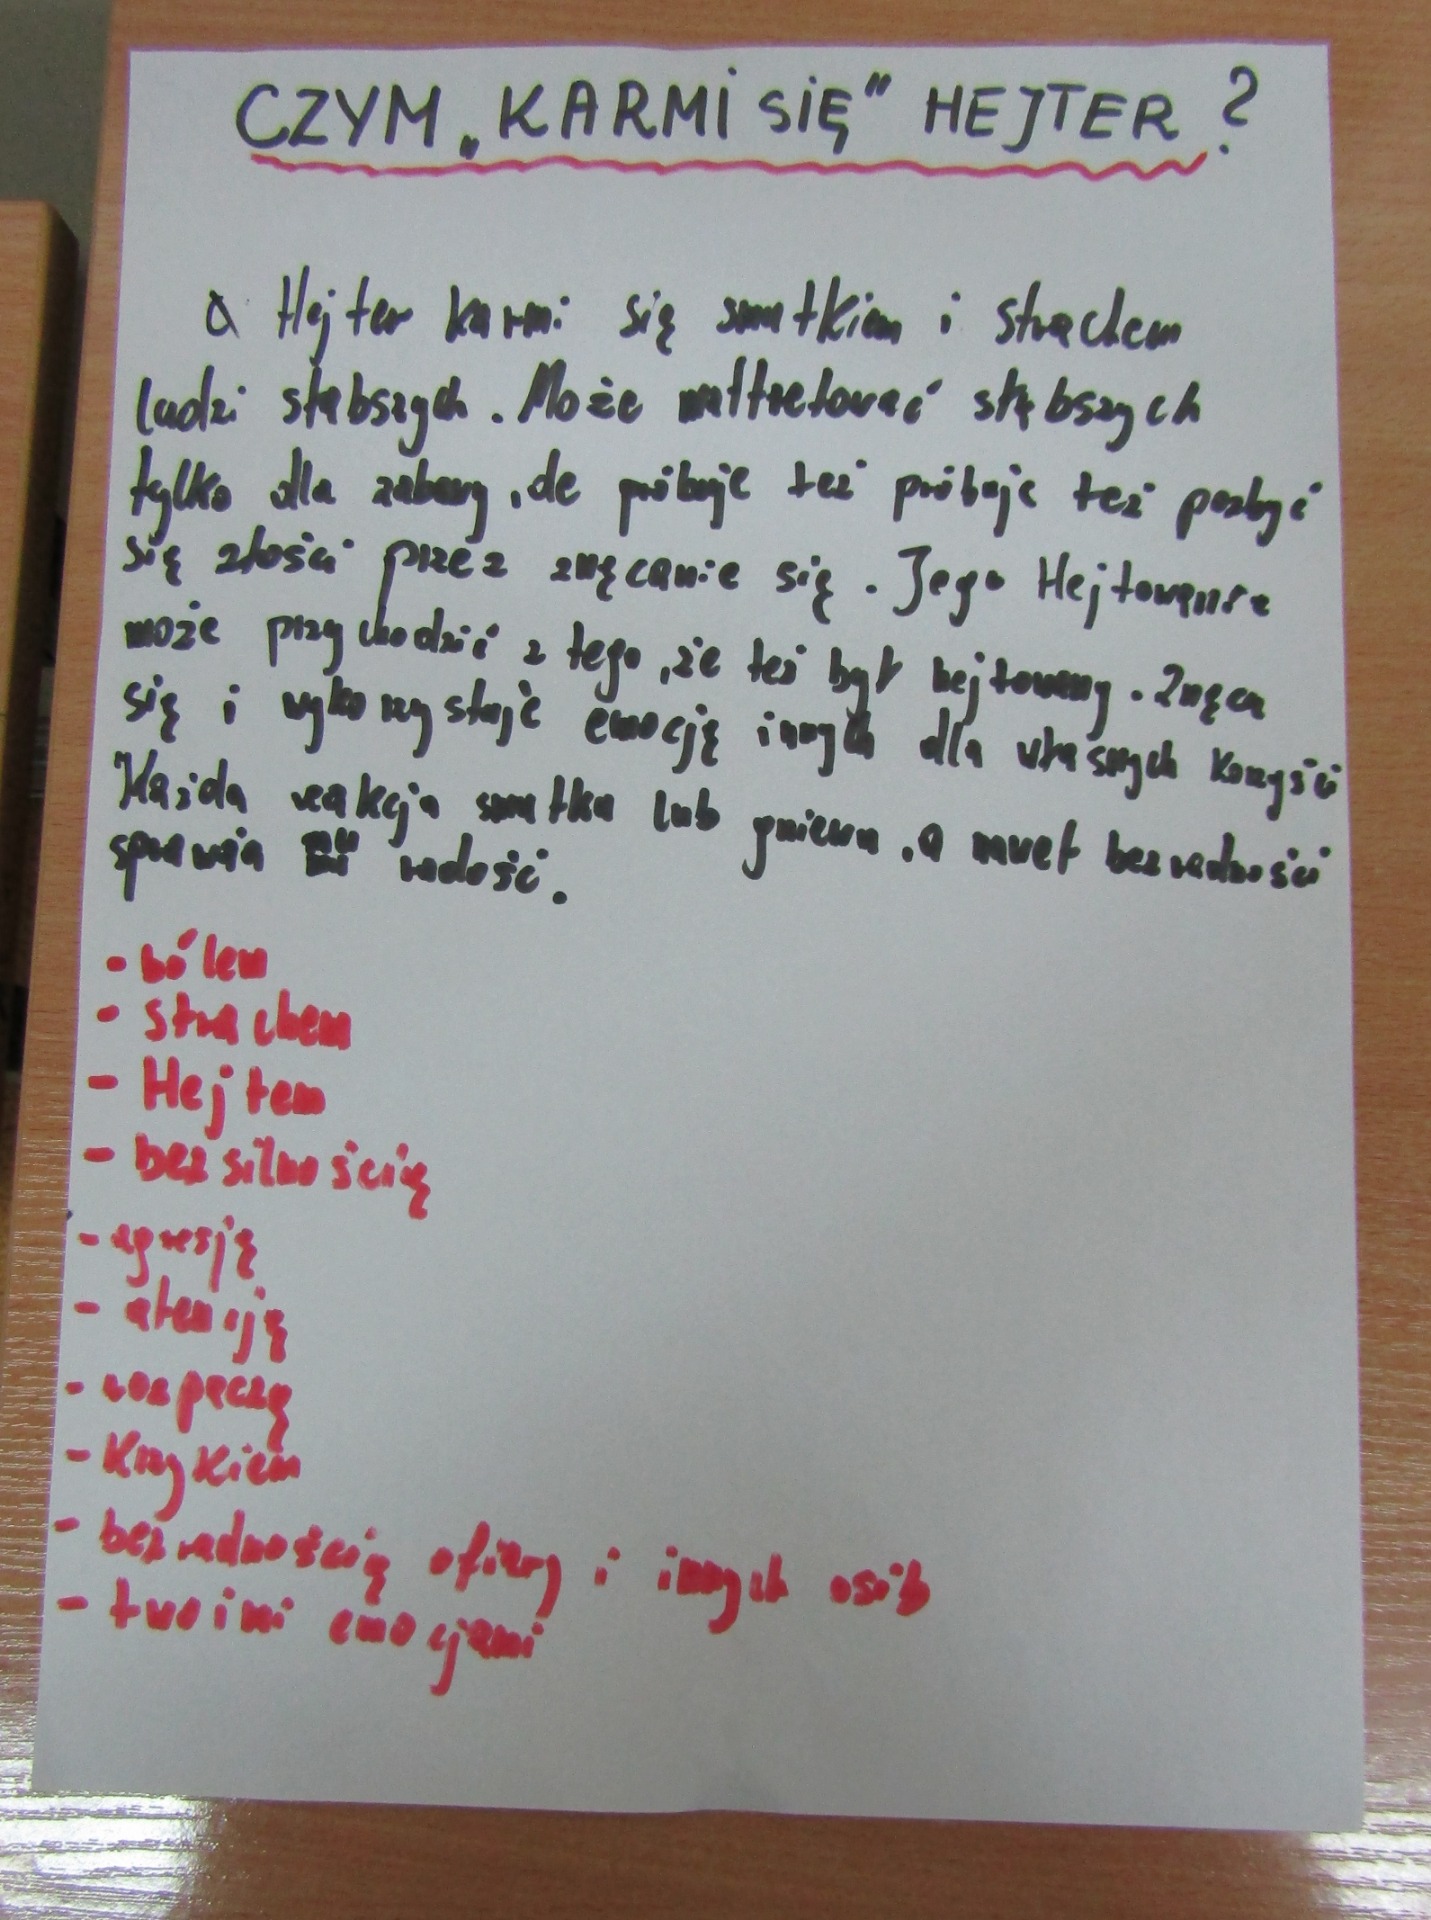 CZYM „KARMI SIĘ” HEJTER?
Hejter karmi się smutkiem i strachem
ludzi słabszych. Może maltretować słabszych
tylko dla zabawy, ale próbuje też próbuje też pozbyć
się złości przez znęcanie się. Jego Hejtowanie
może przychodzić z tego, że też był hejtowany. Znęca
się i wykorzystuje emocję innych dla własnych korzyści
Każda reakcja smutku lub gniewu, a nawet bezradności
sprawia mu radość.
- bólem
- strachem
- Hejtem
- bezsilnością
- agresją
- atencją
- rozpaczą
- Krzykiem
- bezradnością ofiary i innych osób
- twoimi emocjami